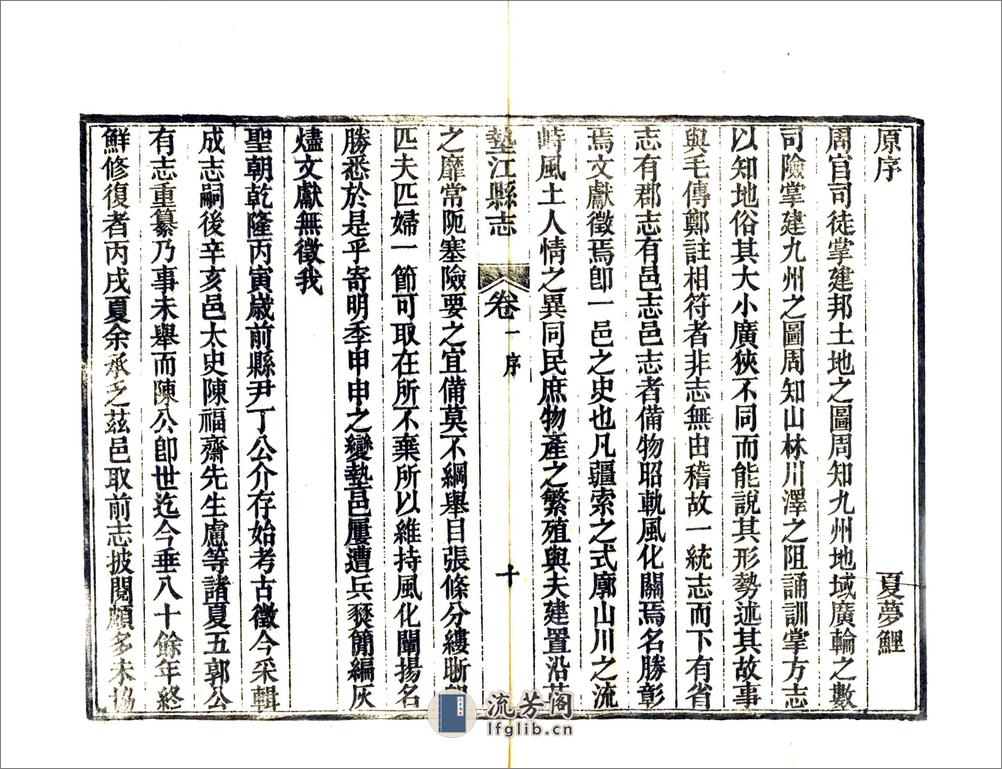 原序
夏夢鯉
周官司徒掌建邦土地之圖周知九州地域廣輪之數
司險掌建九州之圖周知山林川澤之阻誦訓掌方志
以知地俗其大小廣狹不同而能說其形勢述其故事
與毛傳鄭註相符者非志無由稽故一統志而下有省
志有郡志有邑志邑志者備物昭軌風化關焉名勝彰
焉文獻徵焉卽一邑之史也凡疆索之式廓山川之流
峙風土人情之異同民庶物產之繁殖與夫建置沿革
墊江縣志
卷一
序
十
之靡常阨塞險要之宜備莫不綱舉目張條分縷晰卽
匹夫匹婦一節可取在所不棄所以維持風化闡揚名
勝悉於是乎寄明季申申之變墊邑屢遭兵燹簡編灰
燼文獻無徵我
聖朝乾隆丙寅歲前縣尹丁公介存始考古徵今采輯
成志嗣後辛亥邑太史陳福齋先生慮等諸夏五郭公
有志重纂乃事未舉而陳公卽世迄今垂八十餘年終
鮮修復者丙戌夏余承乏茲邑取前志披閱頗多未協
流芳阁
lfglib.cn